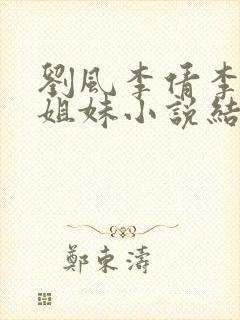 劉風李倩李
姐妹小說結
鄭東濤